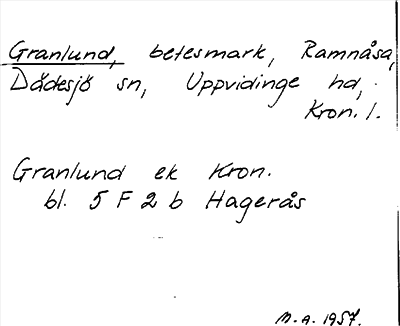 Granlund, betesmark, Ramnåsa,
Dädesjö sn, Uppvidinge hd,
Kron. l.
Granlund ek Kron.
bl. 5 F 2 b Hagerås
M. A. 1957.